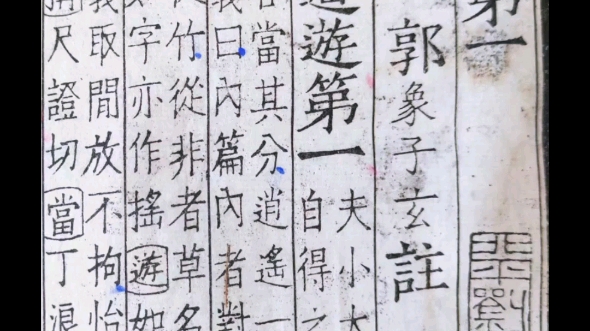 第一
郭象子玄註
遊第一
夫小大
自得之
當其分逍遙一
曰內篇內者對
竹從非者草名
字亦作搖遊如
取閒放不拘怡
尺證切當丁浪